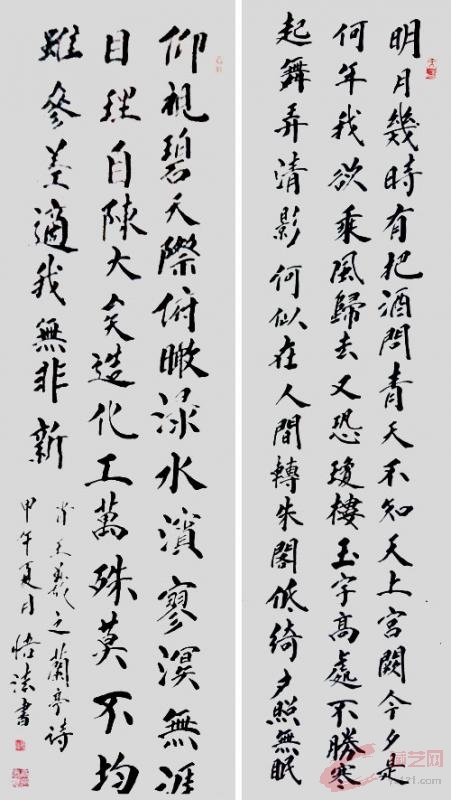 明月幾時有把酒問青天不知天上宮闕今夕是
何年我欲乘風歸去又恐瓊樓玉宇高處不勝寒
起舞弄清影何似在人間轉朱閣低綺户照無眠
仰視碧天際俯瞰淥水濱寥溟無涯
目理自陳大矣造化工萬殊莫不均
雖參差適我無非新
王羲之蘭亭詩
甲午夏月悟法書
藏艺网